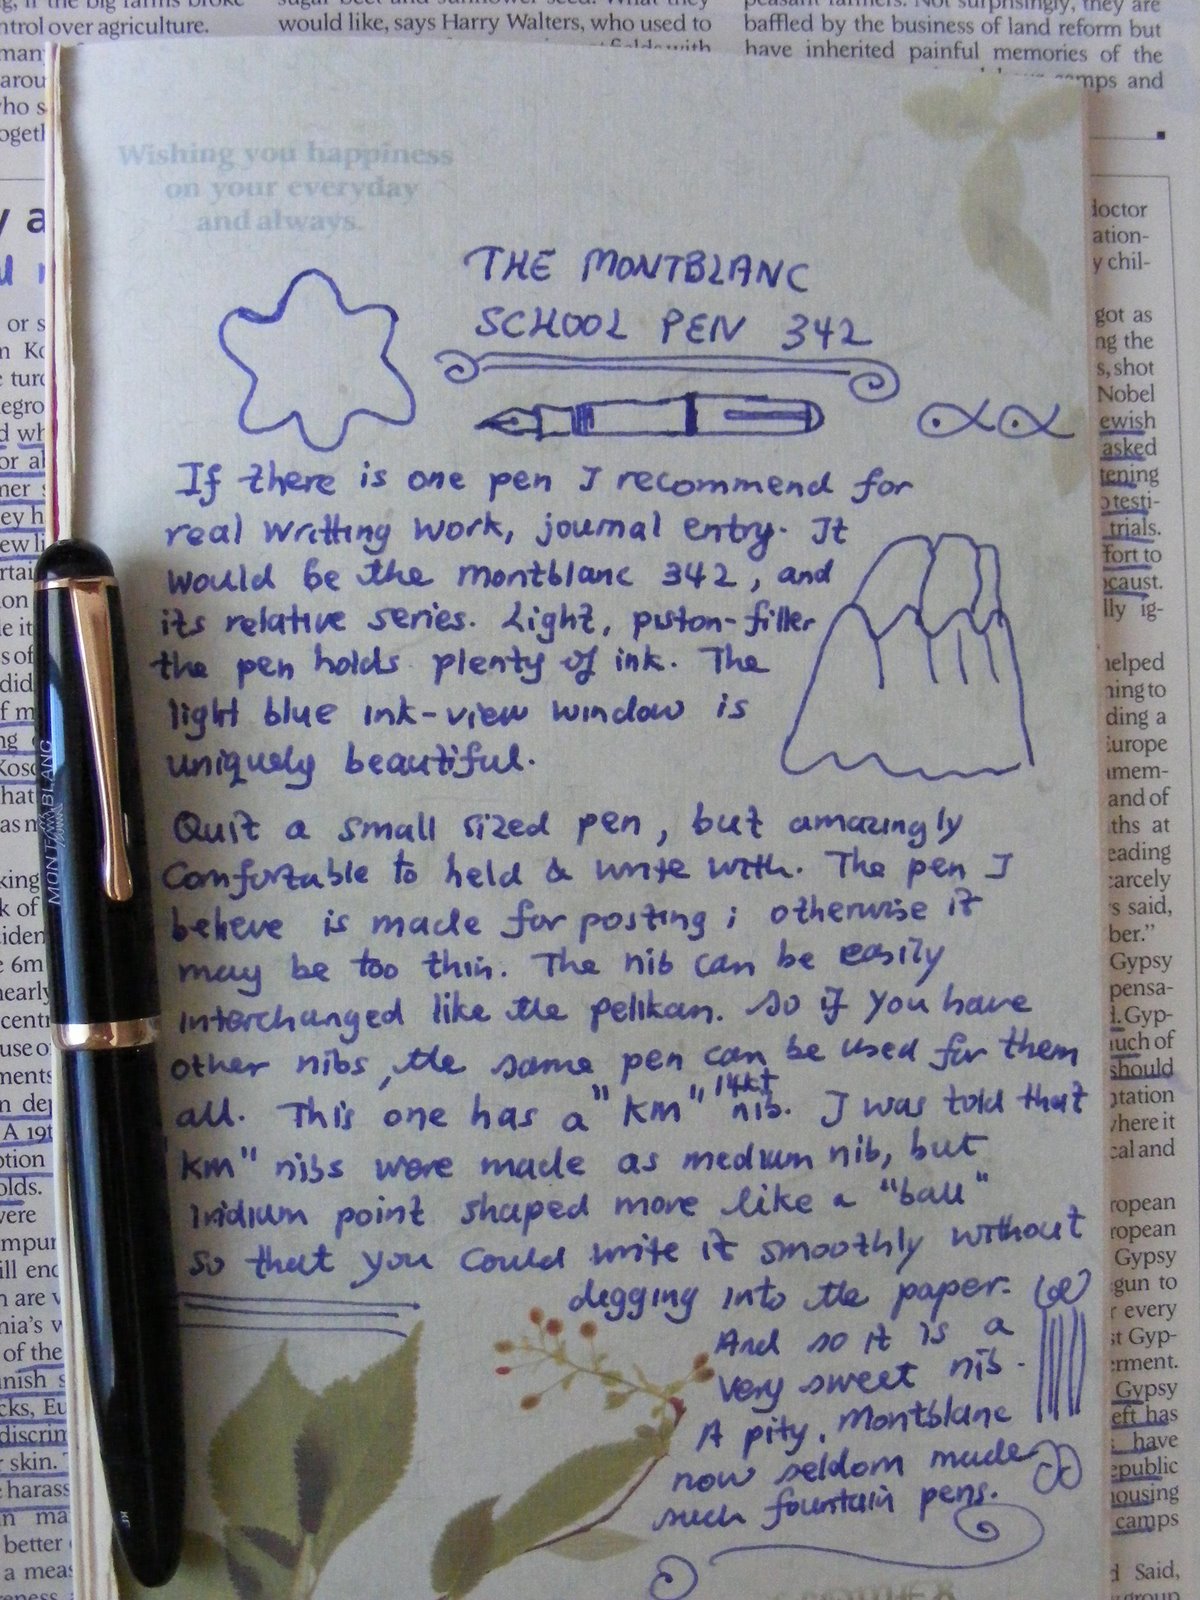 ntrol over agriculture.
would like, says Harry Walters, who used to
peasant farmers. Not surprisingly, they are
baffled by the business of land reform but
have inherited painful memories of the
camps and
Wishing you happiness
on your everyday
and always.
THE MONTBLANC
SCHOOL PEN 342
If there is one pen I recommend for
real writting work, journal entry. It
would be the montblanc 342, and
its relative series. Light, piston-filler
the pen holds plenty of ink. The
light blue ink-view window is
uniquely beautiful.
Quit a small sized pen, but amazingly
Comfortable to held & write with. The pen I
believe is made for posting; otherwise it
may be too thin. The nib can be easily
interchanged like the pelikan. So if you have
other nibs, the same pen can be used for them
all. This one has a "KM" 14kt nib. I was told that
KM" nibs were made as medium nib, but
Iridium point shaped more like a "ball"
so that you could write it smoothly without
digging into the paper.
And so it is a
very sweet nib.
A pity, Montblanc
now seldom made
such fountain pens.
MONTBLANC
KF
doctor
ation-
y chil-
got as
ng the
s, shot
Nobel
ewish
asked
tening
o testi-
trials.
fort to
ocaust.
lly ig-
helped
ning to
ding a
Europe
amem-
and of
ths at
eading
carcely
s said,
ber."
Gypsy
pensa-
d. Gyp-
much of
should
ntation
where it
cal and
ropean
ropean
Gypsy
gun to
r every
st Gyp-
erment.
Gypsy
eft has
have
epublic
housing
camps
d Said,
group